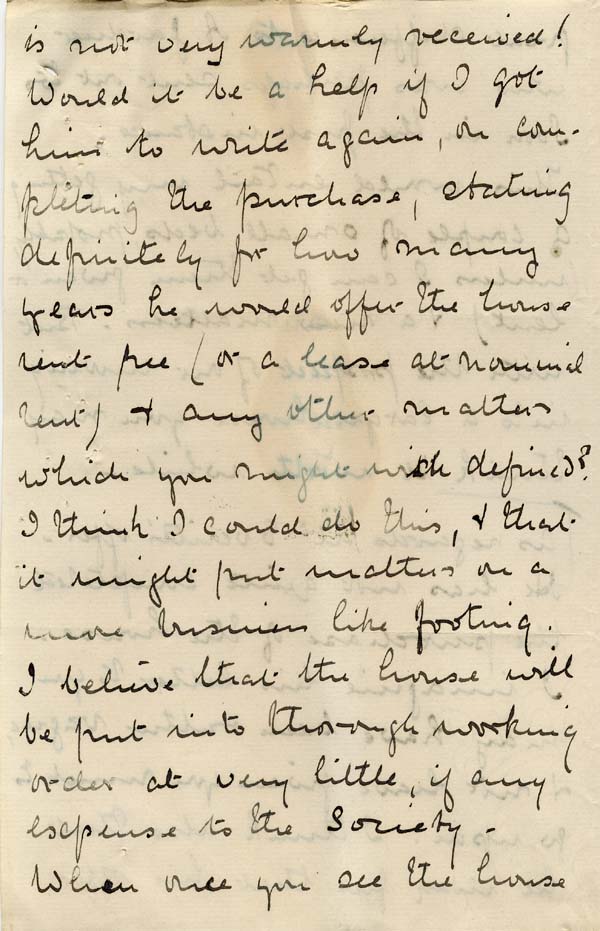 is not very warmly received!
Would it be a help if I got
him to write again, on com-
pleting the purchase, stating
definitely for how many
years he would offer the house
rent free (or a lease at nominal
rent) & any other matters
which you might wish defined?
I think I could do this, & that
it might put matters on a
more business like footing.
I believe that the house will
be put into thorough working
order at very little, if any
expense to the Society -
When once you see the house